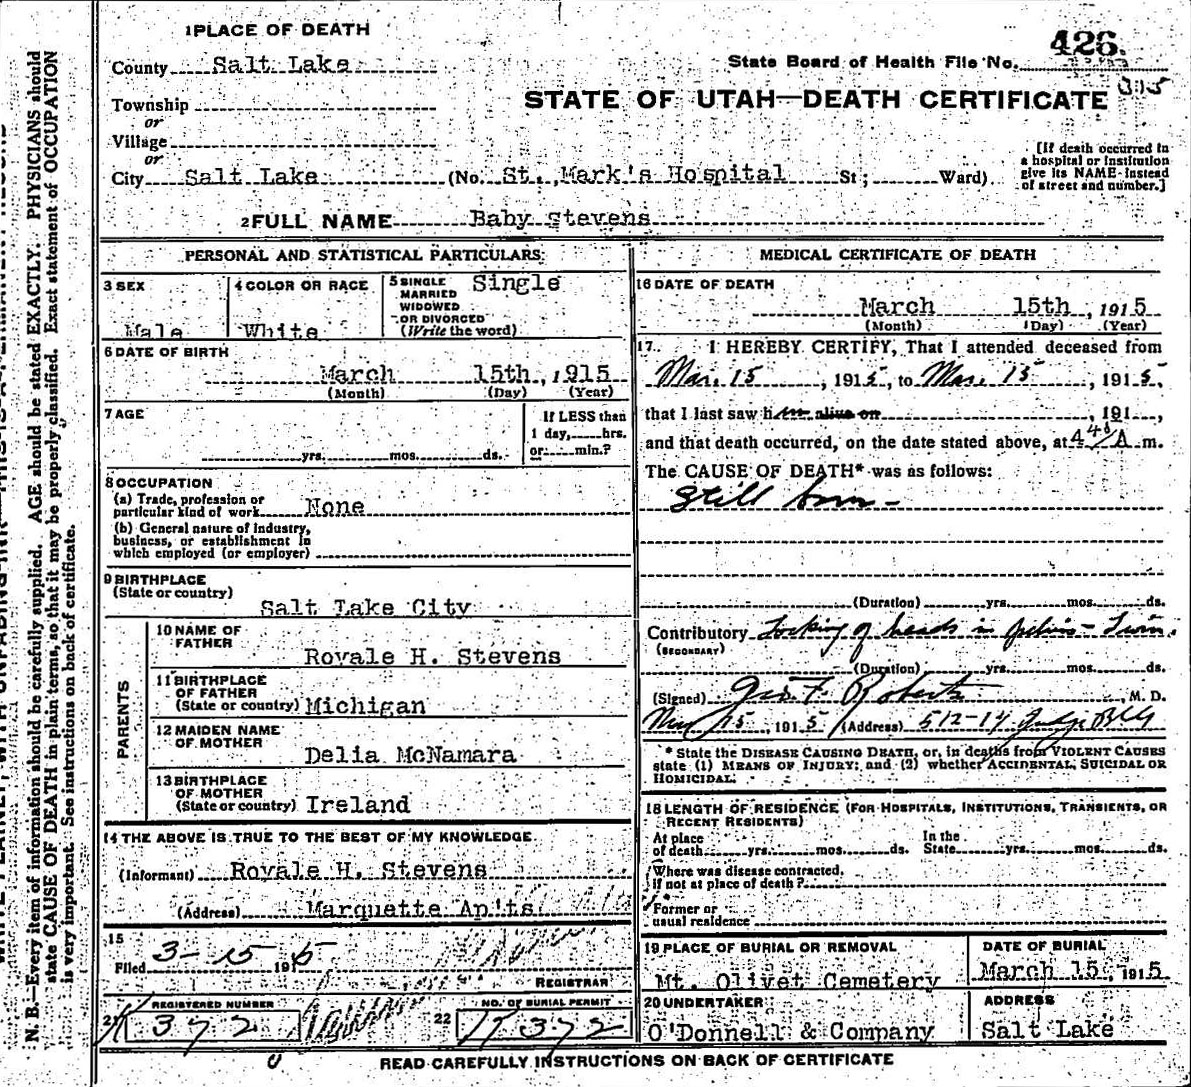 1 PLACE OF DEATH
County Salt Lake
State Board of Health File No. 426.
315
Township
or
STATE OF UTAH—DEATH CERTIFICATE
Village
or
City Salt Lake (No. St. Mark's Hospital St; Ward)
[If death occurred in
a hospital or institution
give its NAME instead
of street and number.]
2 FULL NAME Baby Stevens
PERSONAL AND STATISTICAL PARTICULARS
3 SEX
Male
4 COLOR OR RACE
White
5 SINGLE
MARRIED
WIDOWED
OR DIVORCED
(Write the word)
Single
6 DATE OF BIRTH
March 15th, 1915
(Month) (Day) (Year)
7 AGE
yrs. mos. ds.
If LESS than
1 day, hrs.
or min.?
8 OCCUPATION
(a) Trade, profession or
particular kind of work None
(b) General nature of industry,
business, or establishment in
which employed (or employer)
9 BIRTHPLACE
(State or country)
Salt Lake City
PARENTS
10 NAME OF
FATHER
Royale H. Stevens
11 BIRTHPLACE
OF FATHER
(State or country) Michigan
12 MAIDEN NAME
OF MOTHER
Delia McNamara
13 BIRTHPLACE
OF MOTHER
(State or country) Ireland
14 THE ABOVE IS TRUE TO THE BEST OF MY KNOWLEDGE.
(Informant) Royale H. Stevens
(Address) Marquette Ap'ts
15
Filed 3-15 1915
REGISTRAR
REGISTERED NUMBER
21 372
NO. OF BURIAL PERMIT
22 372
MEDICAL CERTIFICATE OF DEATH
16 DATE OF DEATH
March 15th, 1915
(Month) (Day) (Year)
17. I HEREBY CERTIFY, That I attended deceased from
Mar. 15, 1915, to Mar. 15, 1915,
that I last saw him alive on , 191 ,
and that death occurred, on the date stated above, at A m.
The CAUSE OF DEATH* was as follows:
Still born -
(Duration) yrs. mos. ds.
Contributory Locking of heads in pelvis - Twin.
(SECONDARY)
(Duration) yrs. mos. ds.
(Signed) Geo. F. Roberts M. D.
Mar 15, 1915 (Address) 512-14 Judge Bldg
* State the DISEASE CAUSING DEATH, or, in deaths from VIOLENT CAUSES
state (1) MEANS OF INJURY; and (2) whether ACCIDENTAL, SUICIDAL OR
HOMICIDAL.
18 LENGTH OF RESIDENCE (FOR HOSPITALS, INSTITUTIONS, TRANSIENTS, OR
RECENT RESIDENTS)
At place
of death yrs. mos. ds.
In the
State yrs. mos. ds.
Where was disease contracted,
If not at place of death?
Former or
usual residence
19 PLACE OF BURIAL OR REMOVAL
Mt. Olivet Cemetery
DATE OF BURIAL
March 15, 1915
20 UNDERTAKER
O'Donnell & Company
ADDRESS
Salt Lake
READ CAREFULLY INSTRUCTIONS ON BACK OF CERTIFICATE
N. B.—Every item of information should be carefully supplied. AGE should be stated EXACTLY. PHYSICIANS should
state CAUSE OF DEATH in plain terms, so that it may be properly classified. Exact statement of OCCUPATION
is very important. See instructions on back of certificate.